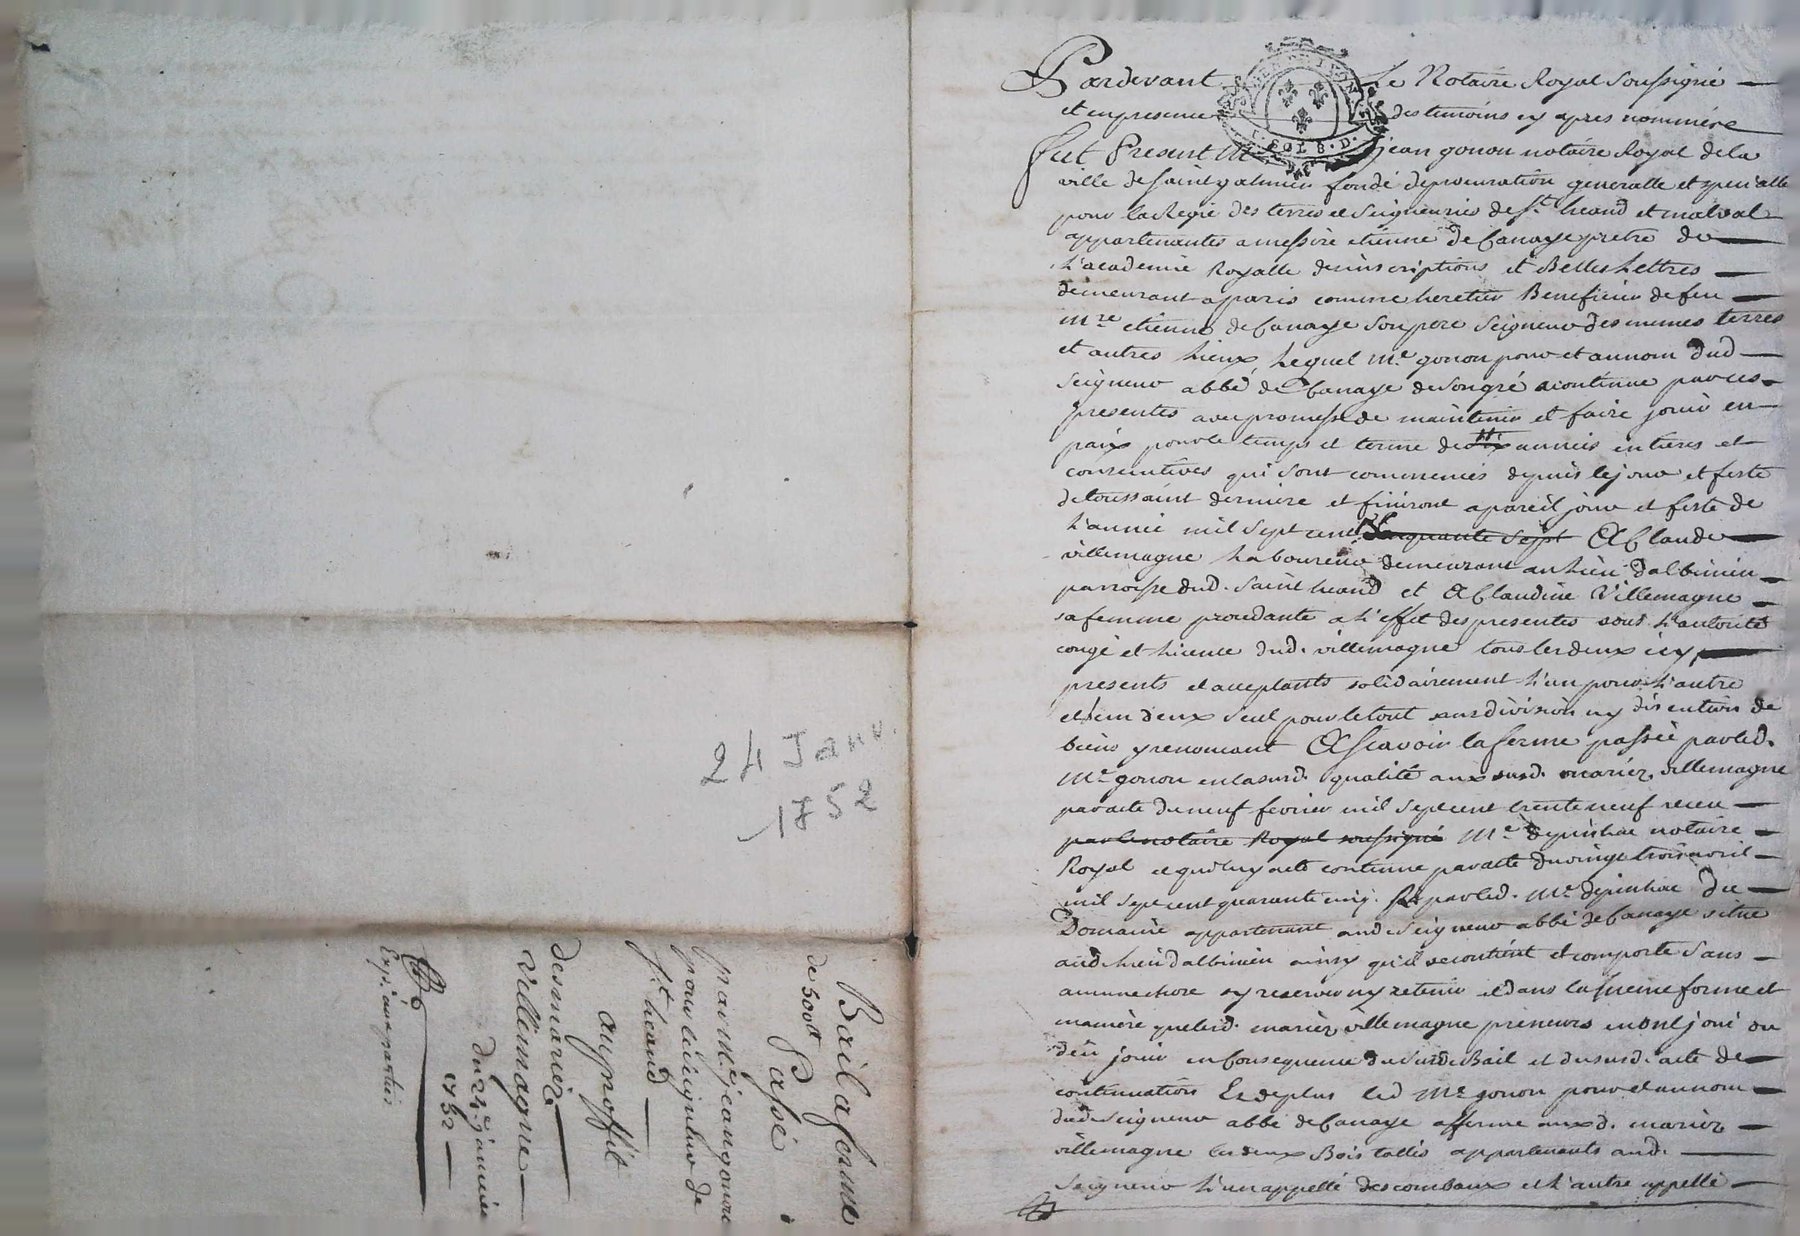 24 Janv.
1752
Bail a ferme
de 500tt
Passé
par Me jean gonon
pour le seigneur de
st heand
au proffit
des mariez
villemagne
du 24e janvier
1752
Exp. aux parties
GEN DE LYON
SOLS.D.
Pardevant Le Notaire Royal soussigné
et en presence des temoins cy apres nommés
fut Present Me jean gonon notaire Royal de la
ville de saint galmier fondé de procuration generalle et specialle
pour la Regie des terres et seigneuries de st heand et malval
appartenantes a messire etienne de Canaye pretre de
L'academie Royalle des inscriptions et Belles Lettres
demeurant a paris comme heretier Beneficier de feu
Mre etienne de Canaye son pere seigneur des memes terres
et autres Lieux, Lequel Me gonon pour et au nom dud
seigneur abbé de Canaye de son gré a continué par ces
presentes avec promesse de maintenir et faire jouir en
paix pour le temps et terme de six années entieres et
consecutives qui sont commencées depuis le jour et feste
de toussaint derniere et finiront a pareil jour et feste de
L'année mil sept cent cinquante sept A Claude
villemagne Laboureur demeurant au Lieu d'albinien
parroisse dud. saint heand et A Claudine Villemagne
sa femme procedante a L'effet des presentes sous L'autorité
congé et Licence dud. villemagne tous les deux icy
presents et acceptants solidairement L'un pour L'autre
et un deux seul pour le tout sans division ny discution de
biens y renoncant A scavoir la ferme passée par led.
Me gonon en la susd. qualité aux susd. mariez villemagne
par acte du neuf fevrier mil sept cent trente neuf receu
par le notaire Royal soussigné Me depinhac notaire
Royal et qui luy a eté continué par acte du vingt trois avril
mil sept cent quarante cinq. par led. Me depinhac du
Domaine appartenant aud. seigneur abbé de Canaye situé
aud Lieu d'albinien ainsy qu'il se contient et comporte sans
aucune chose sy reserver ny retenir et dans la meme forme et
maniere que lesd. mariez villemagne preneurs en ont joui ou
deü jouir en Consequence du susd. Bail et du susd. acte de
continuation Et de plus led Me gonon pour et au nom
dud. seigneur abbé de Canaye afferme aux d. mariez
villemagne les deux Bois tallis appartenants aud.
seigneur L'un appellé des combaux et L'autre appellé